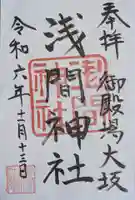 奉拝
御殿場大坂
浅間神社
令和六年十一月十三日